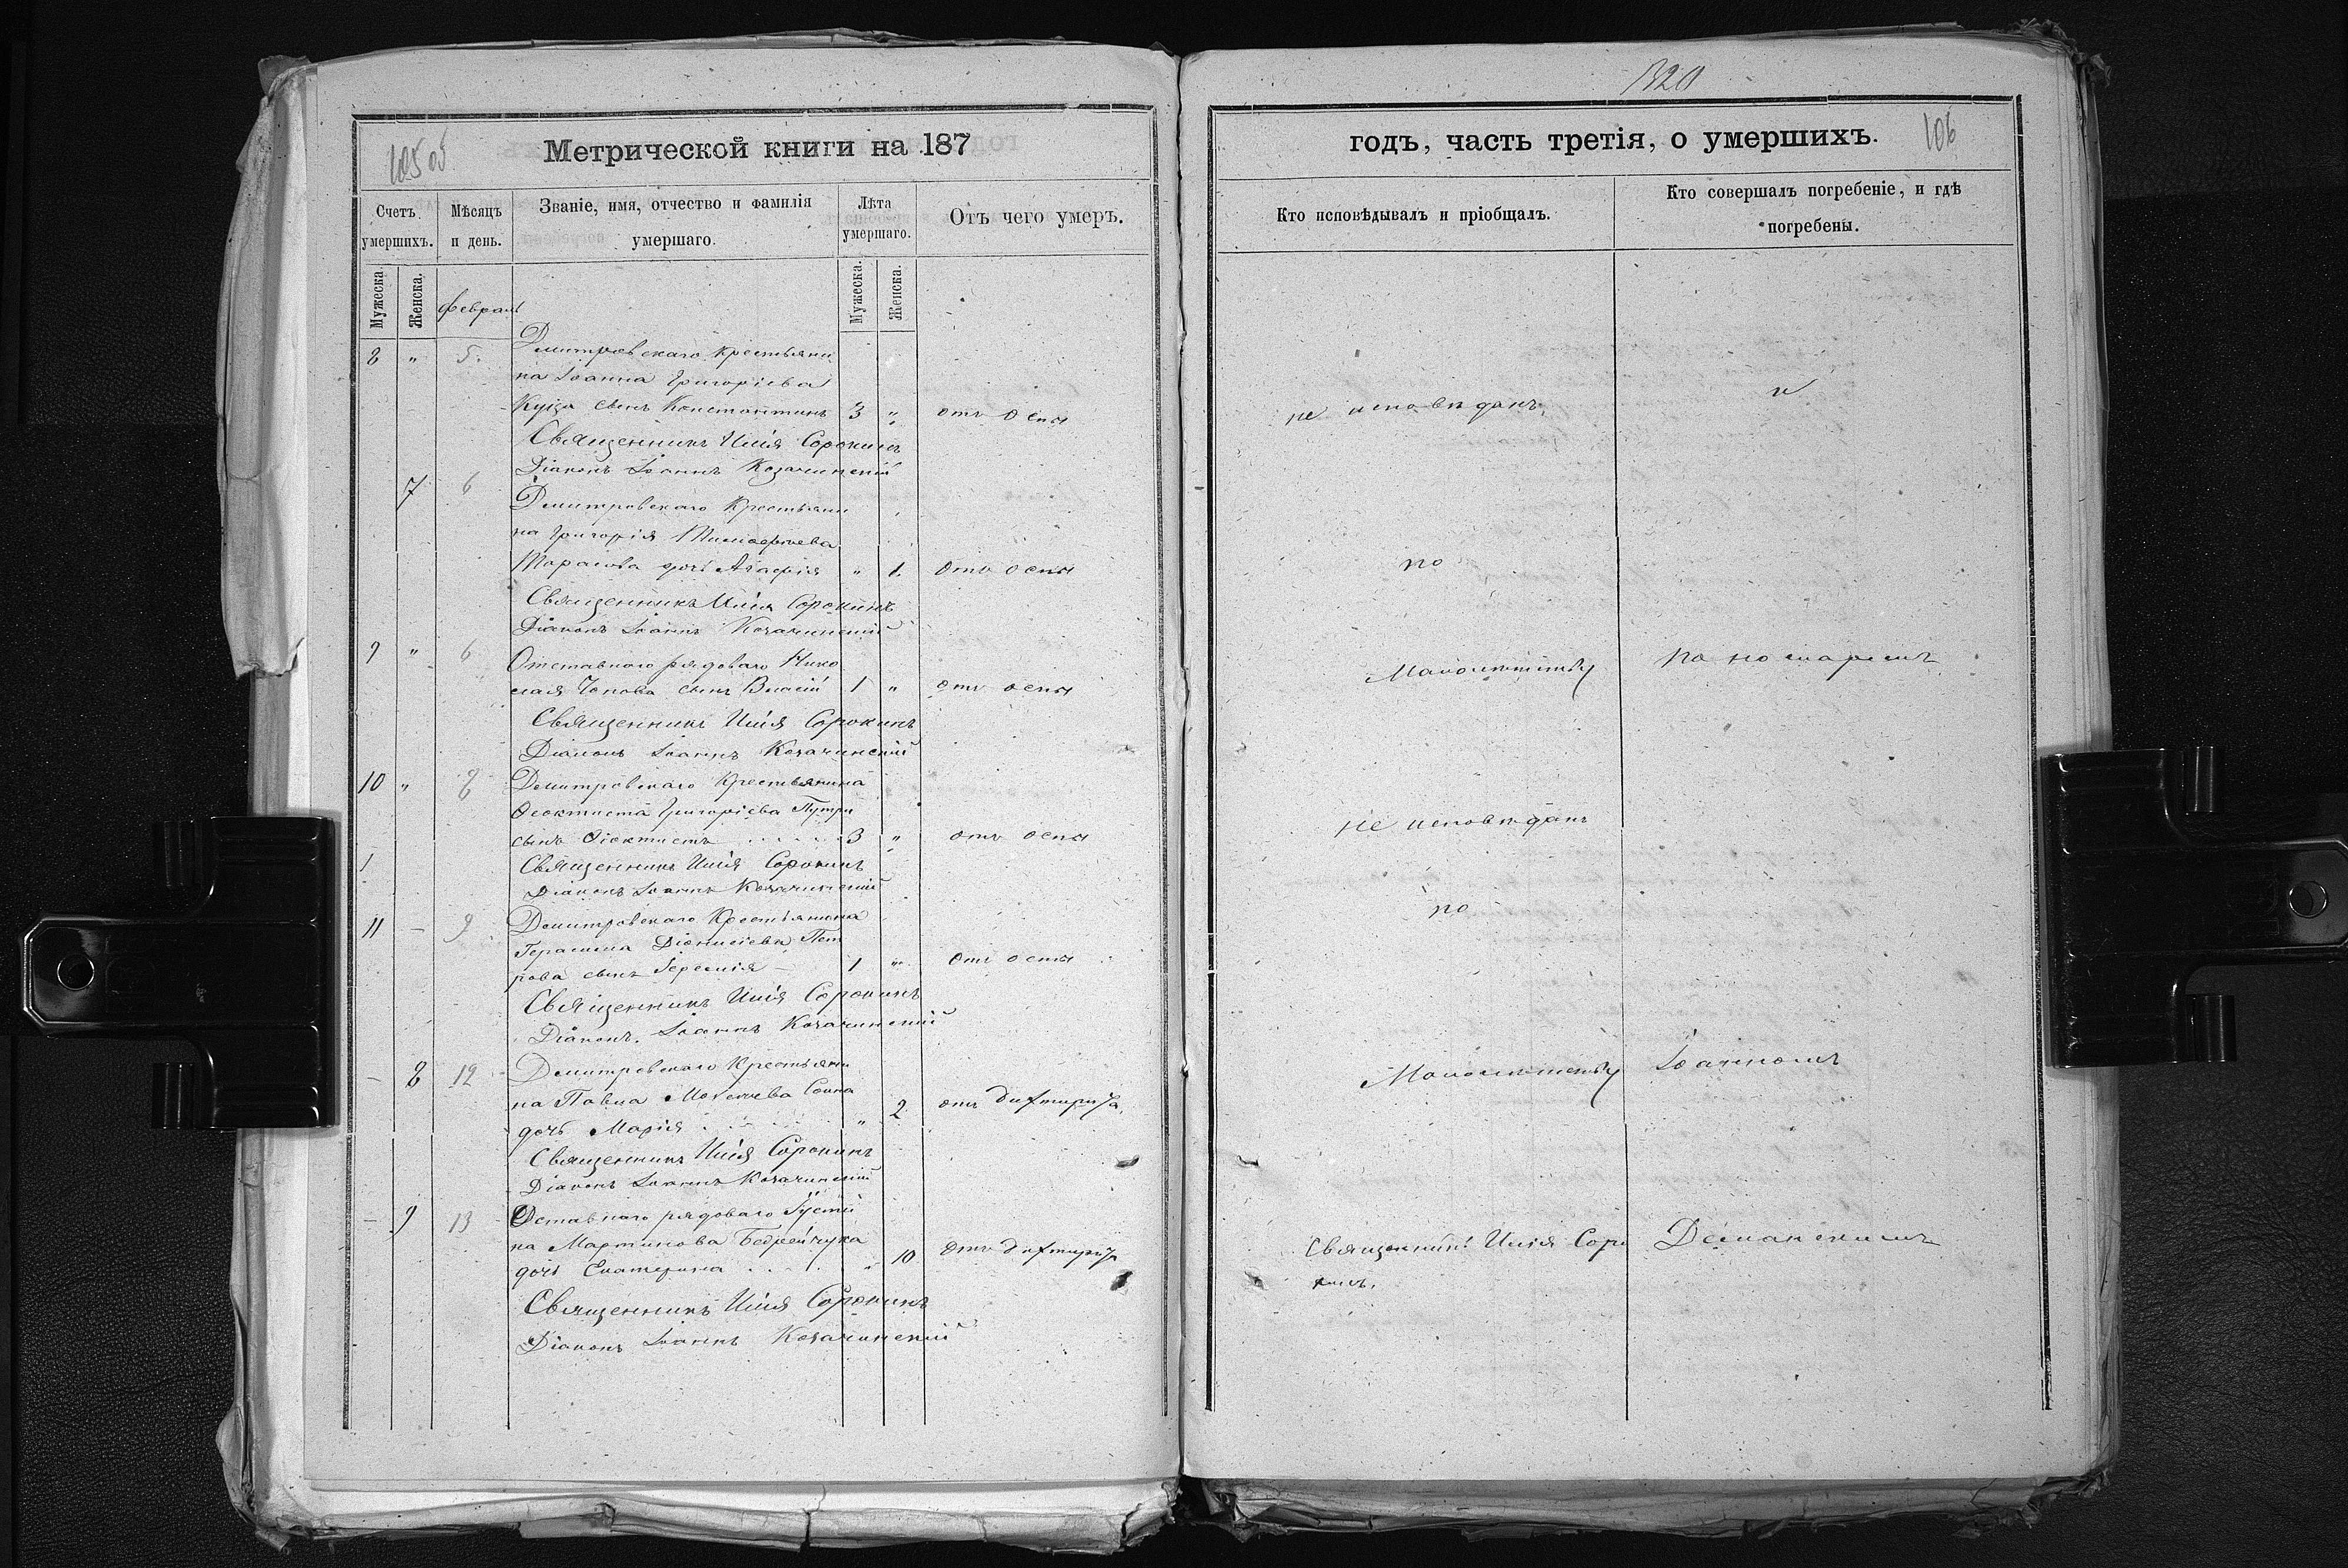 320
105 об
Метрической книги на 187
годъ, часть третія, о умершихъ.
106
Счетъ умершихъ.
Мѣсяцъ и день.
Званіе, имя, отчество и фамилія умершаго.
Лѣта умершаго.
Отъ чего умеръ.
Кто исповѣдывалъ и пріобщалъ.
Кто совершалъ погребеніе, и гдѣ погребены.
Мужеска.
Женска.
Февраль
Мужеска.
Женска.
8 " 5. Дмитровскаго крестьяни
на Іоанна Григоріева
Куца сынъ Константинъ 3 " отъ оспы не исповѣданъ
Священникъ Илія Сорокинъ
Діаконъ Іоаннъ Козачинскій
7 6 Дмитровскаго крестьяни
на Григорія Тимофеева
Тарасова дочь Агафія " 1. отъ оспы по
Священникъ Илія Сорокинъ
Діаконъ Іоаннъ Козачинскій
9 " 6 Отставного рядоваго Нико
лая Чопова сынъ Власій 1 " отъ оспы Малолѣтству
Священникъ Илія Сорокинъ
Діаконъ Іоаннъ Козачинскій
10 " 8 Дмитровскаго крестьянина
Феоктиста Григоріева Путри
сынъ Феоктистъ 3 " отъ оспы не исповѣданъ
1 Священникъ Илія Сорокинъ
Діаконъ Іоаннъ Козачинскій
11 - 9 Дмитровскаго Крестьянина
Герасима Діонисіева Пет
рова сынъ Іеремія 1 " отъ оспы по
Священникъ Илія Сорокинъ
Діаконъ Іоаннъ Козачинскій
- 8 12 Дмитровскаго Крестьяни
на Павла
дочь Марія " 2 отъ дифтирита. Малолѣтству Іоанномъ
Священникъ Илія Сорокинъ
Діаконъ Іоаннъ Козачинскій
- 9 13 Отставного рядоваго Густи
на Мартинова Бедрейчука
дочь Екатерина " 10 отъ дифтирита Священникъ Илія Соро
кинъ.
Священникъ Илія Сорокинъ
Діаконъ Іоаннъ Козачинскій